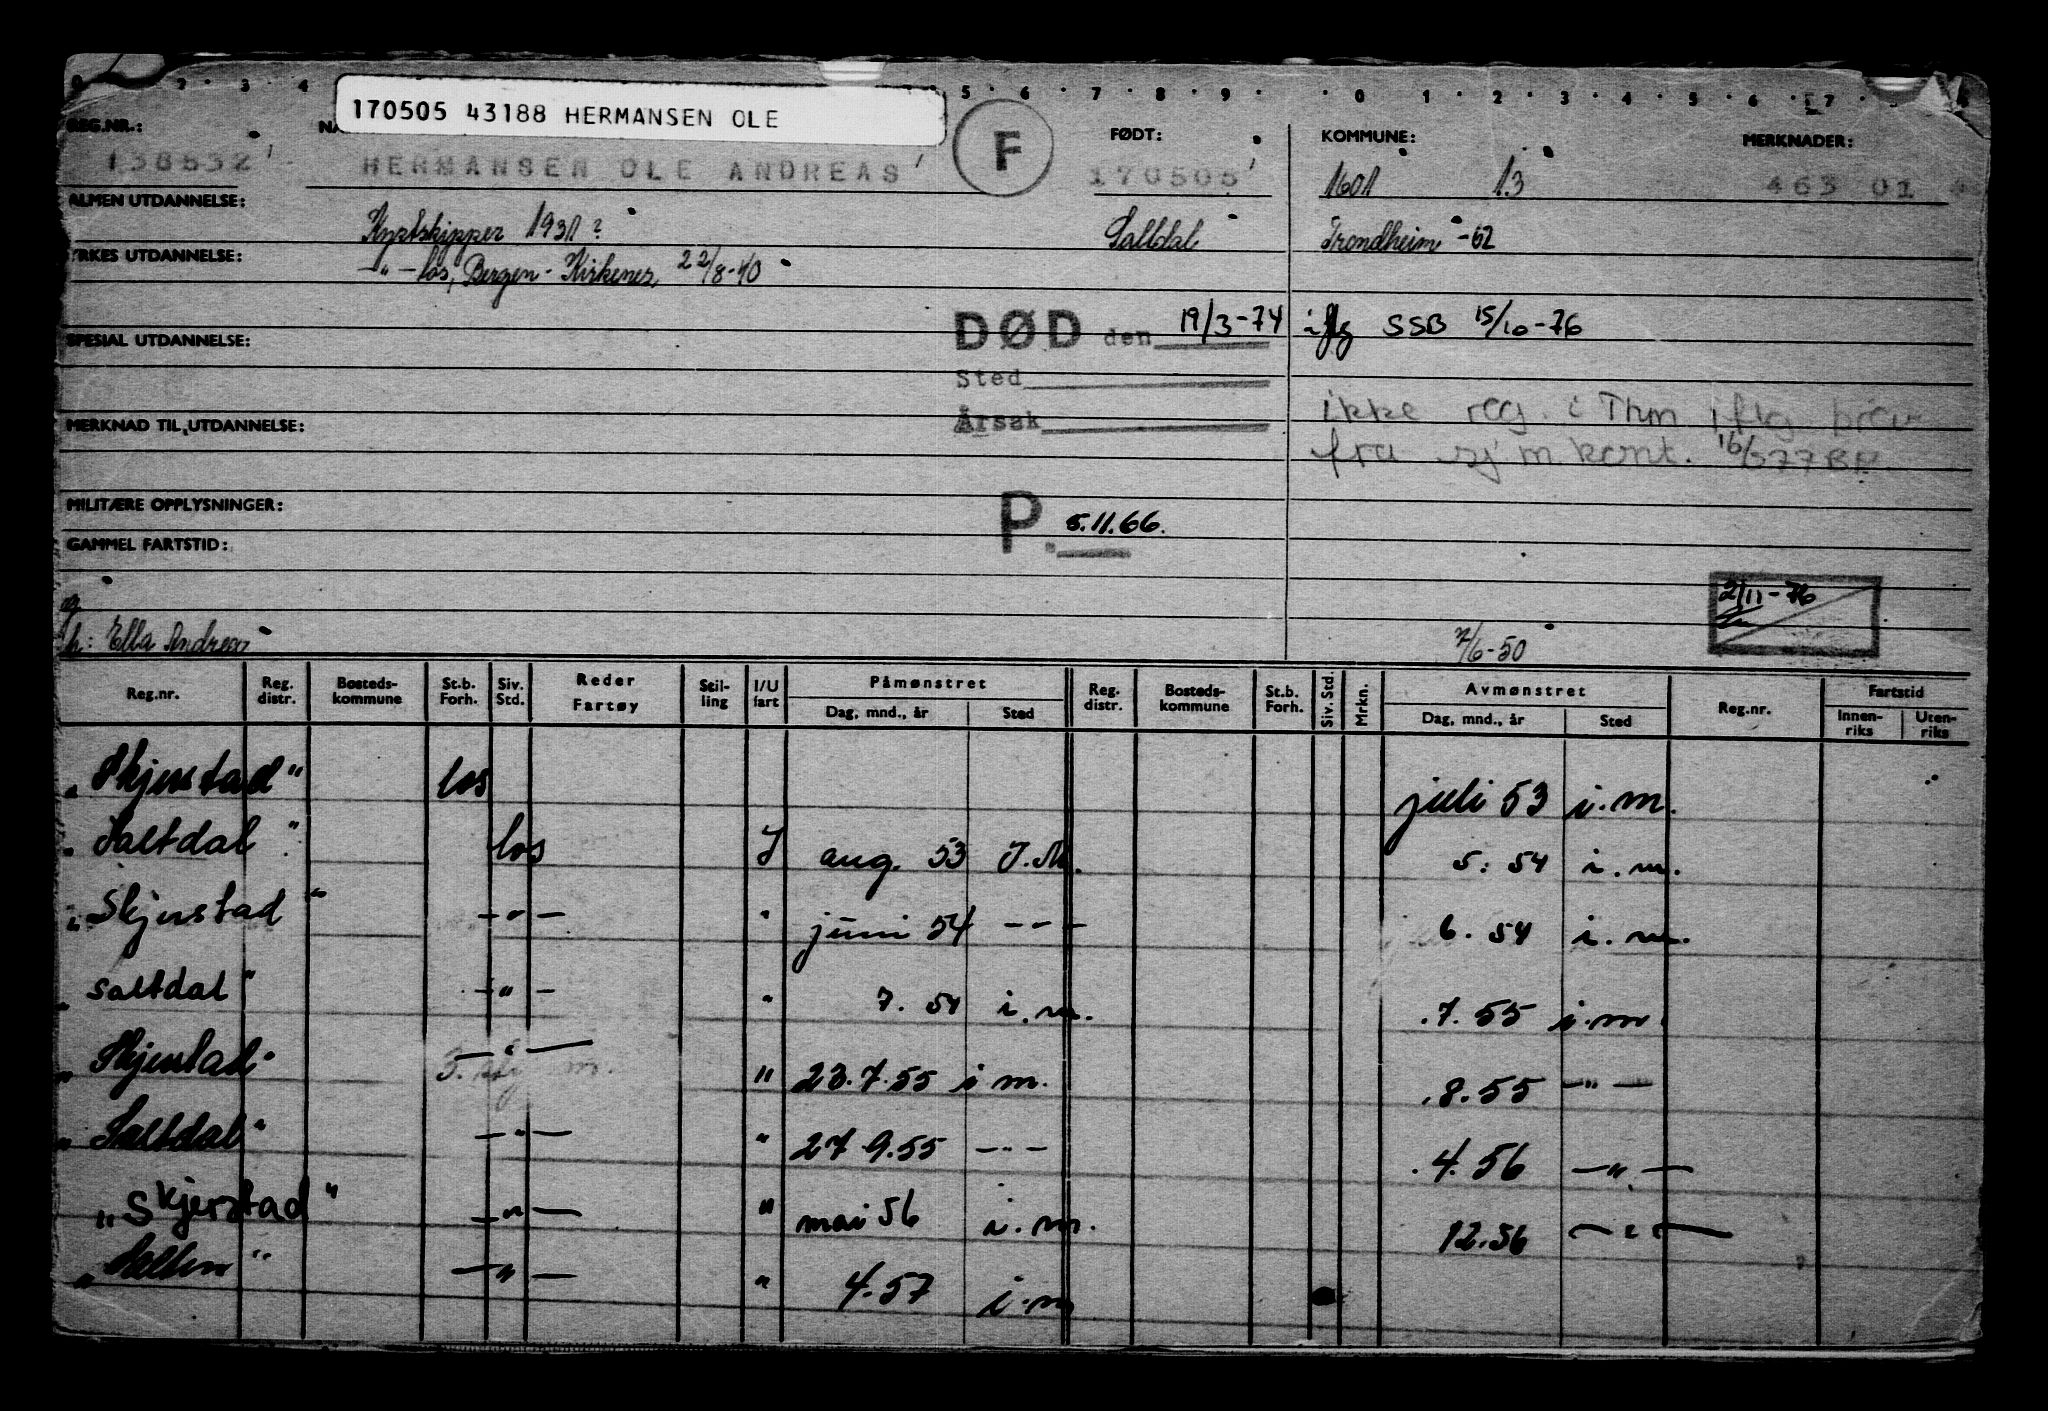 170505 43188 HERMANSEN OLE
REG.NR.: F FØDT: KOMMUNE: MERKNADER:
138632 HERMANSEN OLE ANDREAS 170505 1601 13 463 01
ALMEN UTDANNELSE: Kystskipper 1931? Saltdal Trondheim -62
YRKES UTDANNELSE: -"- los, Bergen - Kirkenes 22/8-40
DØD den 19/3-74 iflg SSB 15/10-76
SPESIAL UTDANNELSE:
Sted
MERKNAD TIL UTDANNELSE: Årsak ikke reg. i Thm iflg brev
fra sjm kont.
MILITÆRE OPPLYSNINGER: P. 5.11.66.
GAMMEL FARTSTID:
2/11-76
h: Ella Andrea 7/6-50
Reg.nr. Reg. distr. Bosteds-kommune St.b. Forh. Siv. Std. Reder Fartøy Stil-ling I/U fart Påmønstret Dag, mnd., år Sted Reg. distr. Bosteds-kommune St.b. Forh. Siv. Std. Mrkn. Avmønstret Dag, mnd., år Sted Reg.nr. Fartstid Innen-riks Uten-riks
"Skjerstad" los juli 53 i.m.
"Saltdal" los I aug. 53 I.M. 5. 54 i.m.
"Skjerstad" -"- " juni 54 -"- 6. 54 i.m.
"Saltdal" -"- " 7. 54 i.m. 7. 55 i.m.
"Skjerstad" -"- " 23.7.55 i m. 8.55 -"-
"Saltdal" -"- " 27 9.55 -"- 4.56 -"-
"Skjerstad" -"- " mai 56 i.m. 12.56 -"-
"Salten" -"- " 4.57 i.m